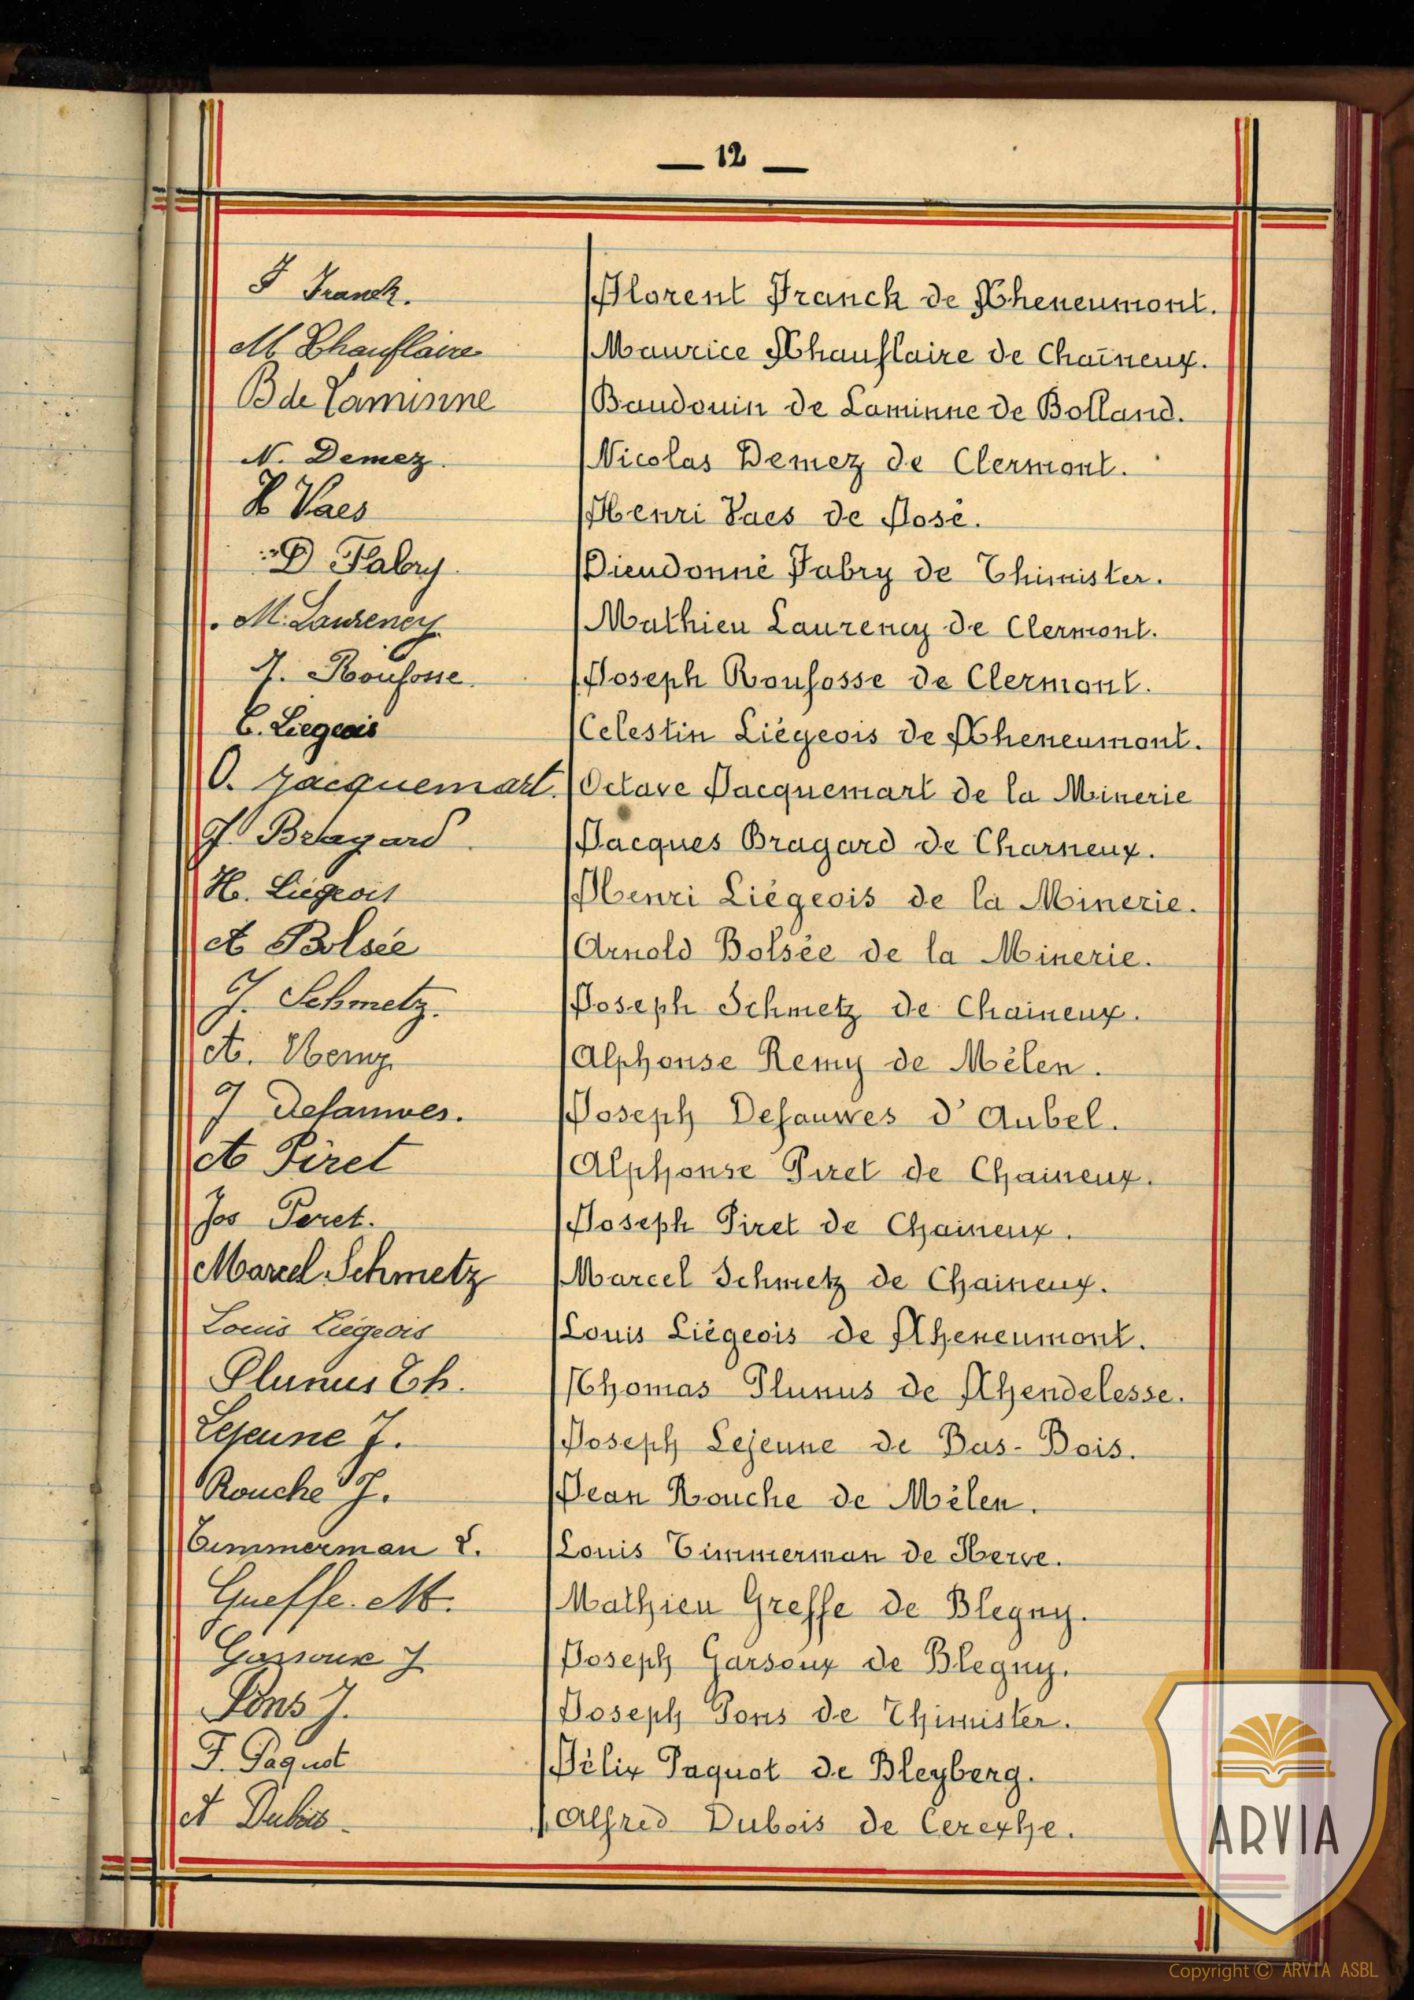 — 12 —
F Franck. Florent Franck de Xheneumont.
M Xhauflaire Maurice Xhauflaire de Chaineux.
B de Laminne Baudouin de Laminne de Bolland.
N. Demez. Nicolas Demez de Clermont.
H Vaes Henri Vaes de José.
D Fabry. Dieudonné Fabry de Thimister.
M. Laurency. Mathieu Laurency de Clermont.
J. Roufosse. Joseph Roufosse de Clermont.
C. Liegeois Celestin Liégeois de Xheneumont.
O. Jacquemart. Octave Jacquemart de la Minerie
J. Bragard. Jacques Bragard de Charneux.
H. Liégeois Henri Liégeois de la Minerie.
A Bolsée Arnold Bolsée de la Minerie.
J. Schmetz. Joseph Schmetz de Chaineux.
A. Remy Alphonse Remy de Mélen.
J Defauwes. Joseph Defauwes d'Aubel.
A Piret Alphonse Piret de Chaineux.
Jos Peret. Joseph Piret de Chaineux.
Marcel Schmetz Marcel Schmetz de Chaineux.
Louis Liégeois Louis Liégeois de Xheneumont.
Plunus Th. Thomas Plunus de Xhendelesse.
Lejeune J. Joseph Lejeune de Bas-Bois.
Rouche J. Jean Rouche de Mélen.
Timmerman L. Louis Timmerman de Herve.
Gueffe. M. Mathieu Greffe de Blegny.
Garsoux J Joseph Garsoux de Blegny.
Pons J. Joseph Pons de Thimister.
F. Paquot Félix Paquot de Bleyberg.
A Dubois. Alfred Dubois de Cerexhe.
ARVIA
Copyright © ARVIA ASBL